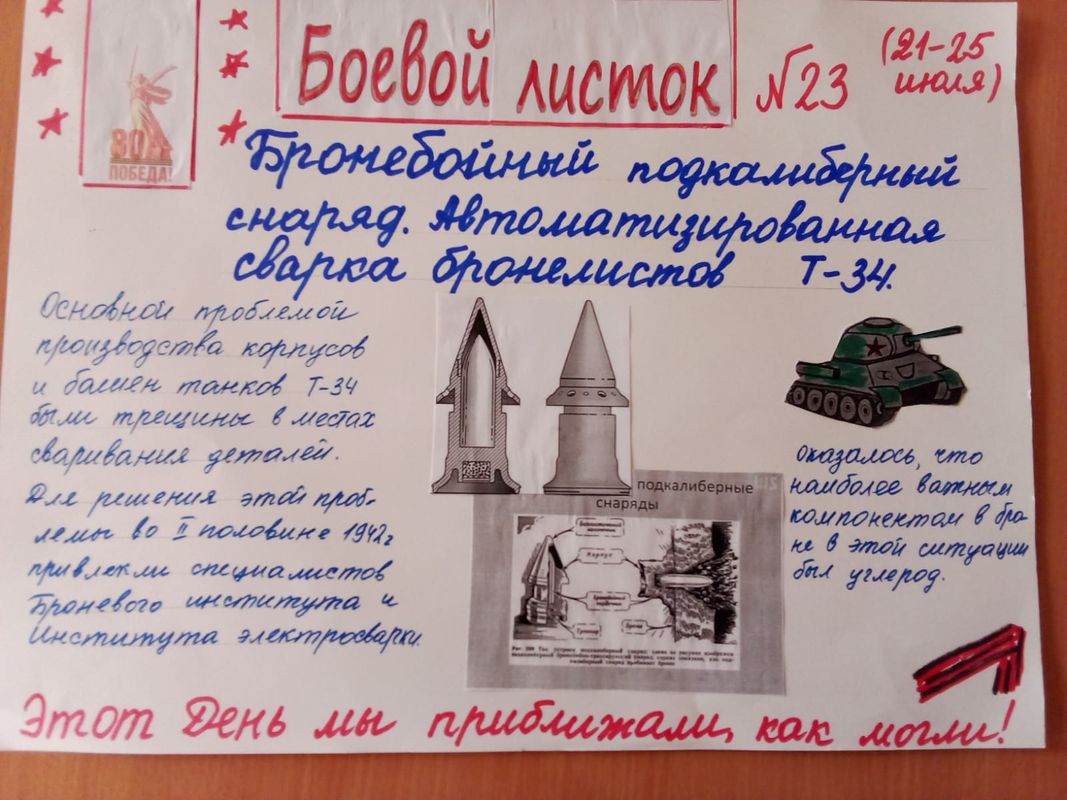 Боевой листок №23 (21-25 июля)
80
ПОБЕДА!
Бронебойный подкалиберный
снаряд. Автоматизированная
сварка бронелистов Т-34.
Основной проблемой
производства корпусов
и башен танков Т-34
были трещины в местах
сваривания деталей.
Для решения этой проб-
лемы во II половине 1942г
привлекли специалистов
Броневого института и
Института электросварки.
подкалиберные
снаряды
Корпус
Броня
Оказалось, что
наиболее важным
компонентом в бро-
не в этой ситуации
был углерод.
Этот День мы приближали, как могли!